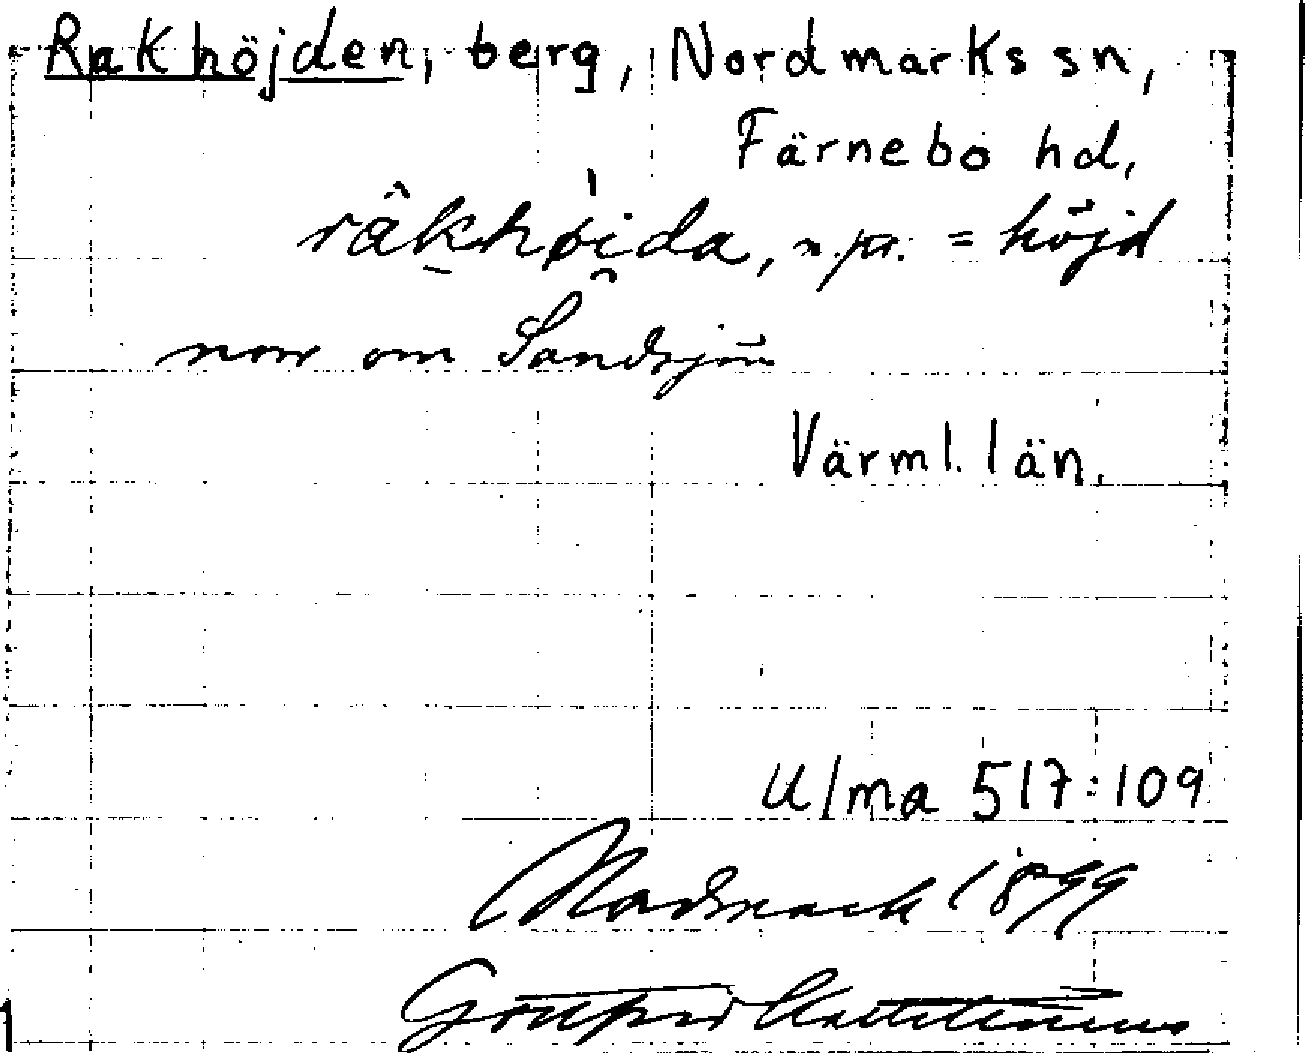 Rakhöjden, berg, Nordmarks sn,
Färnebo hd,
râkhøida, n. pr. = höjd
norr om Sandsjön
Värml. län.
Ulma 517:109
Nordmark 1899
Gottfrid Kallstenius